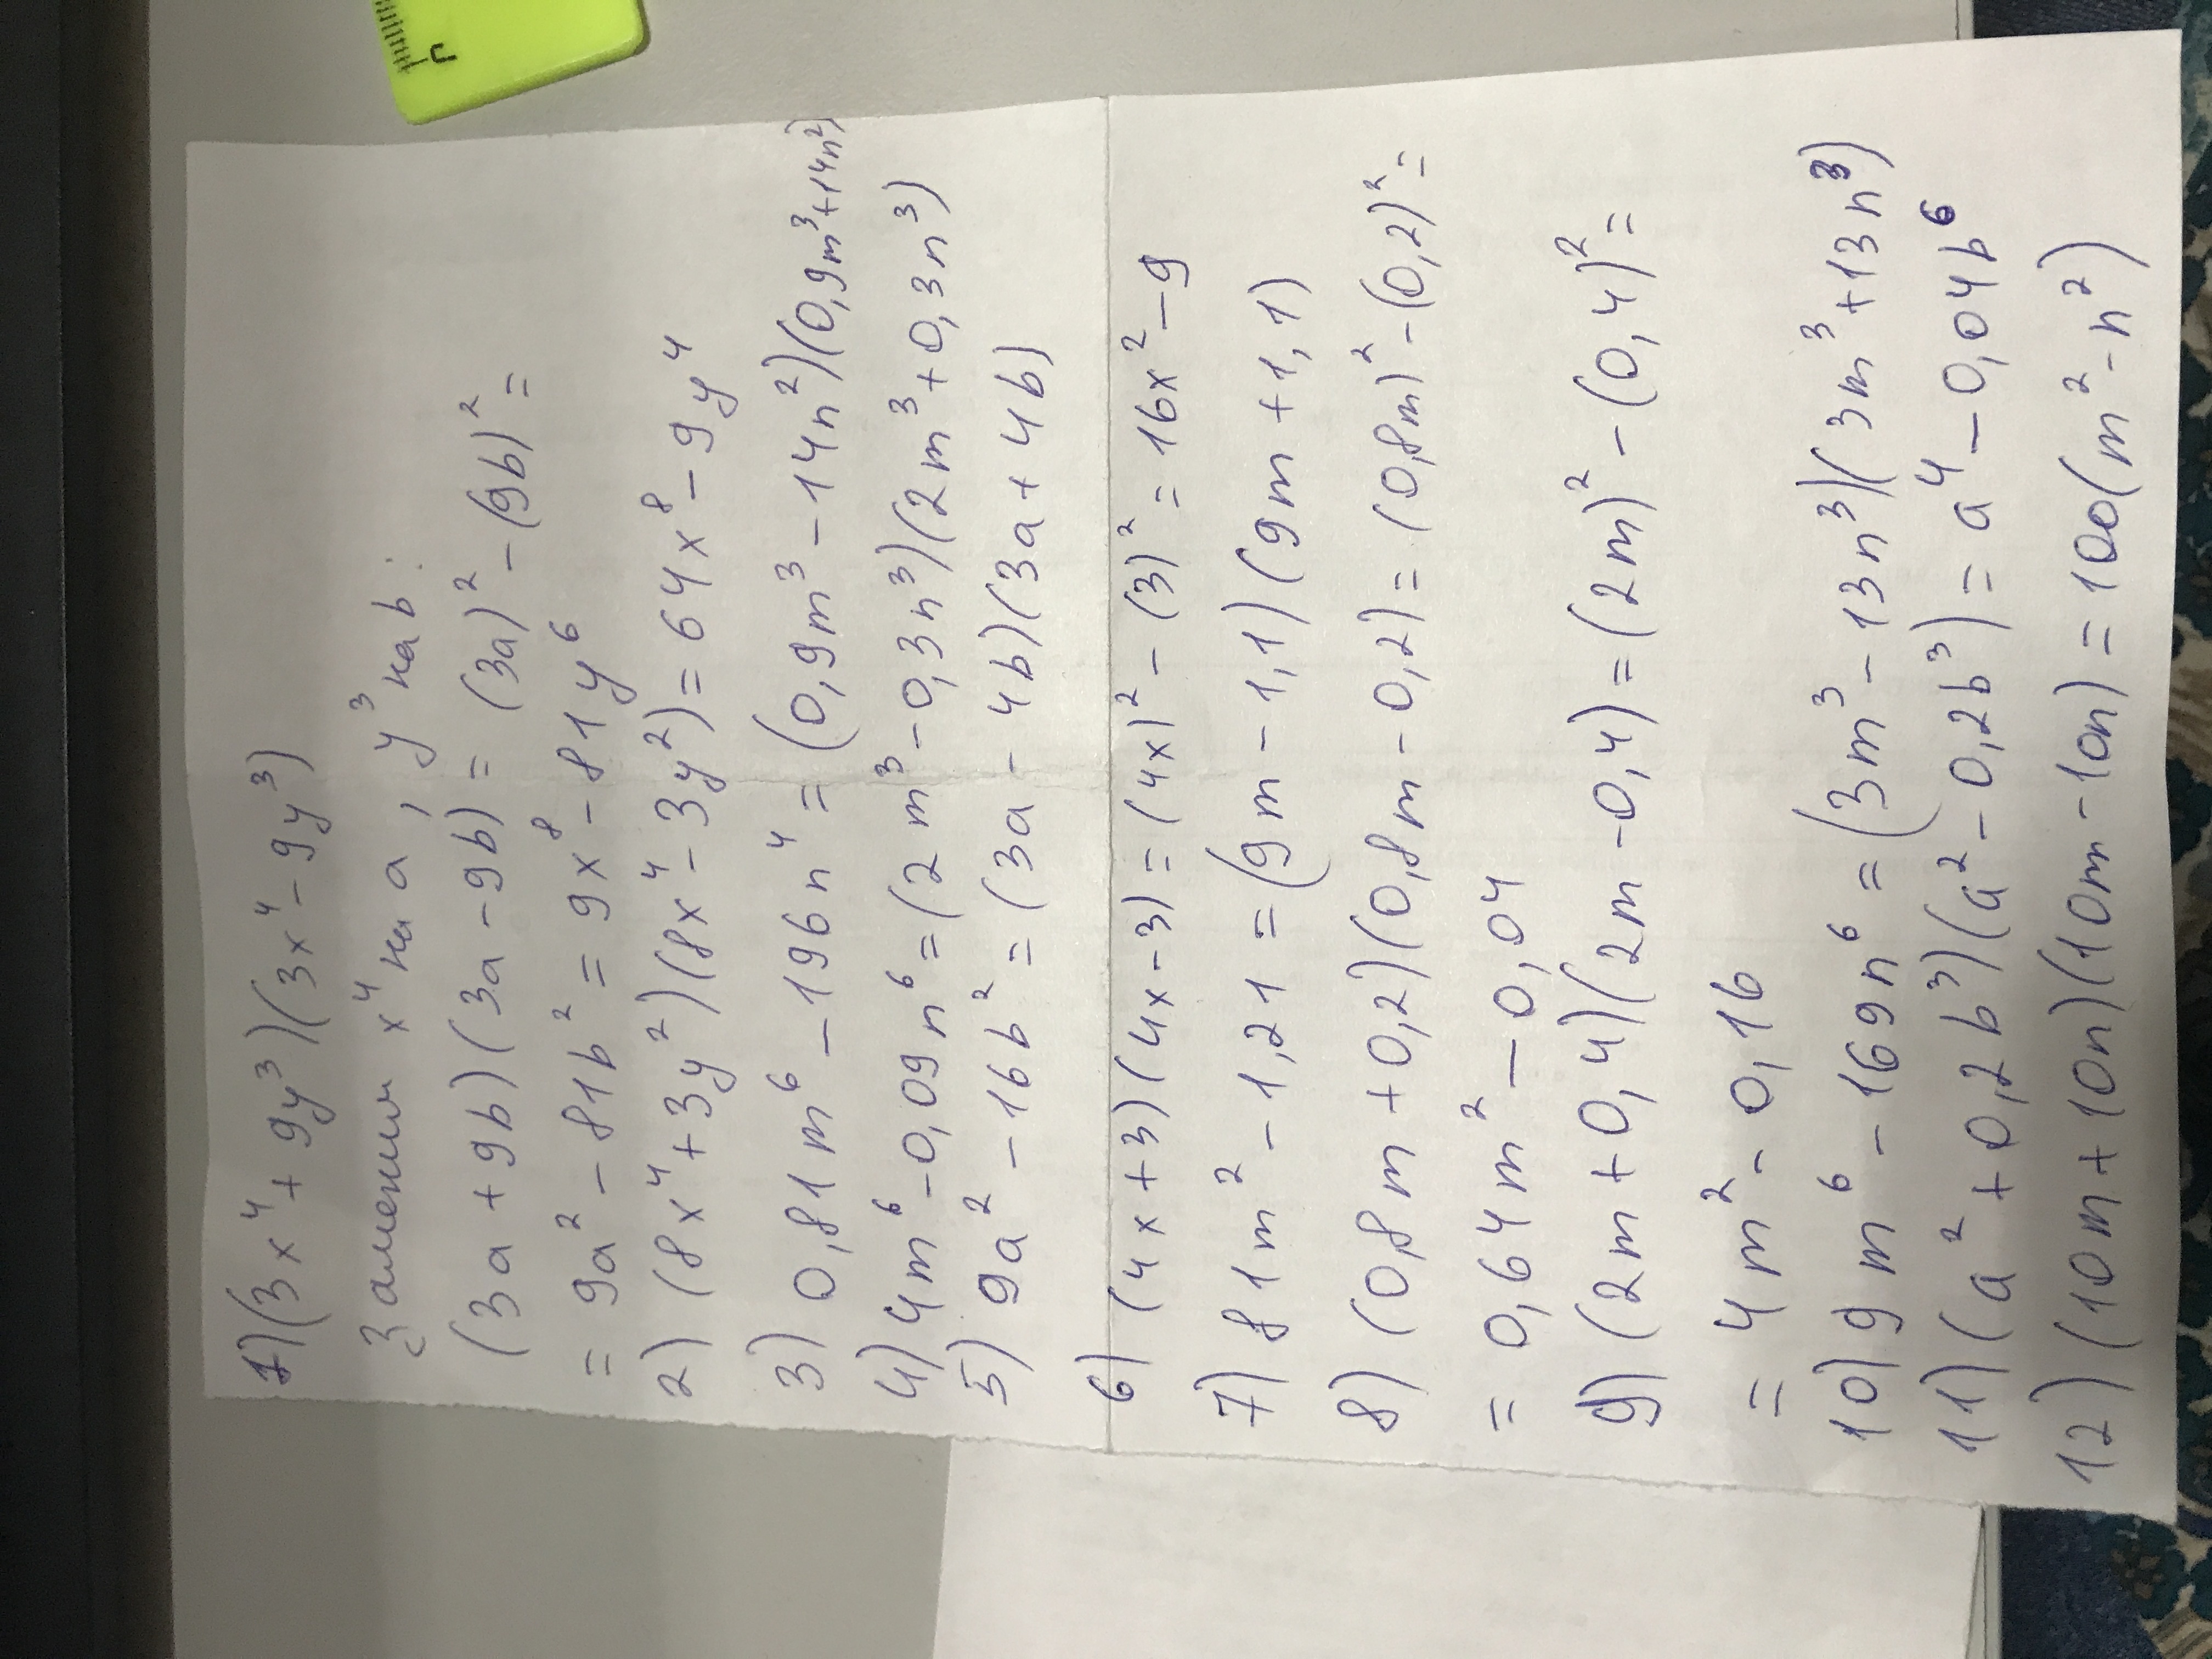 1)(3x⁴+9y³)(3x⁴-9y³)
Заменим x⁴ на a, y³ на b:
(3a+9b)(3a-9b)=(3a)²-(9b)²=
=9a²-81b²=9x⁸-81y⁶
2)(8x⁴+3y²)(8x⁴-3y²)=64x⁸-9y⁴
3) 0,81m⁶-196n⁴=(0,9m³-14n²)(0,9m³+14n²)
4)4m⁶-0,09n⁶=(2m³-0,3n³)(2m³+0,3n³)
5) 9a²-16b²=(3a-4b)(3a+4b)
6) (4x+3)(4x-3)=(4x)²-(3)²=16x²-9
7) 81m²-1,21=(9m-1,1)(9m+1,1)
8) (0,8m+0,2)(0,8m-0,2)=(0,8m)²-(0,2)²=
=0,64m²-0,04
9) (2m+0,4)(2m-0,4)=(2m)²-(0,4)²=
=4m²-0,16
10) 9m⁶-169n⁶=(3m³-13n³)(3m³+13n³)
11)(a²+0,2b³)(a²-0,2b³)=a⁴-0,04b⁶
12)(10m+10n)(10m-10n)=100(m²-n²)